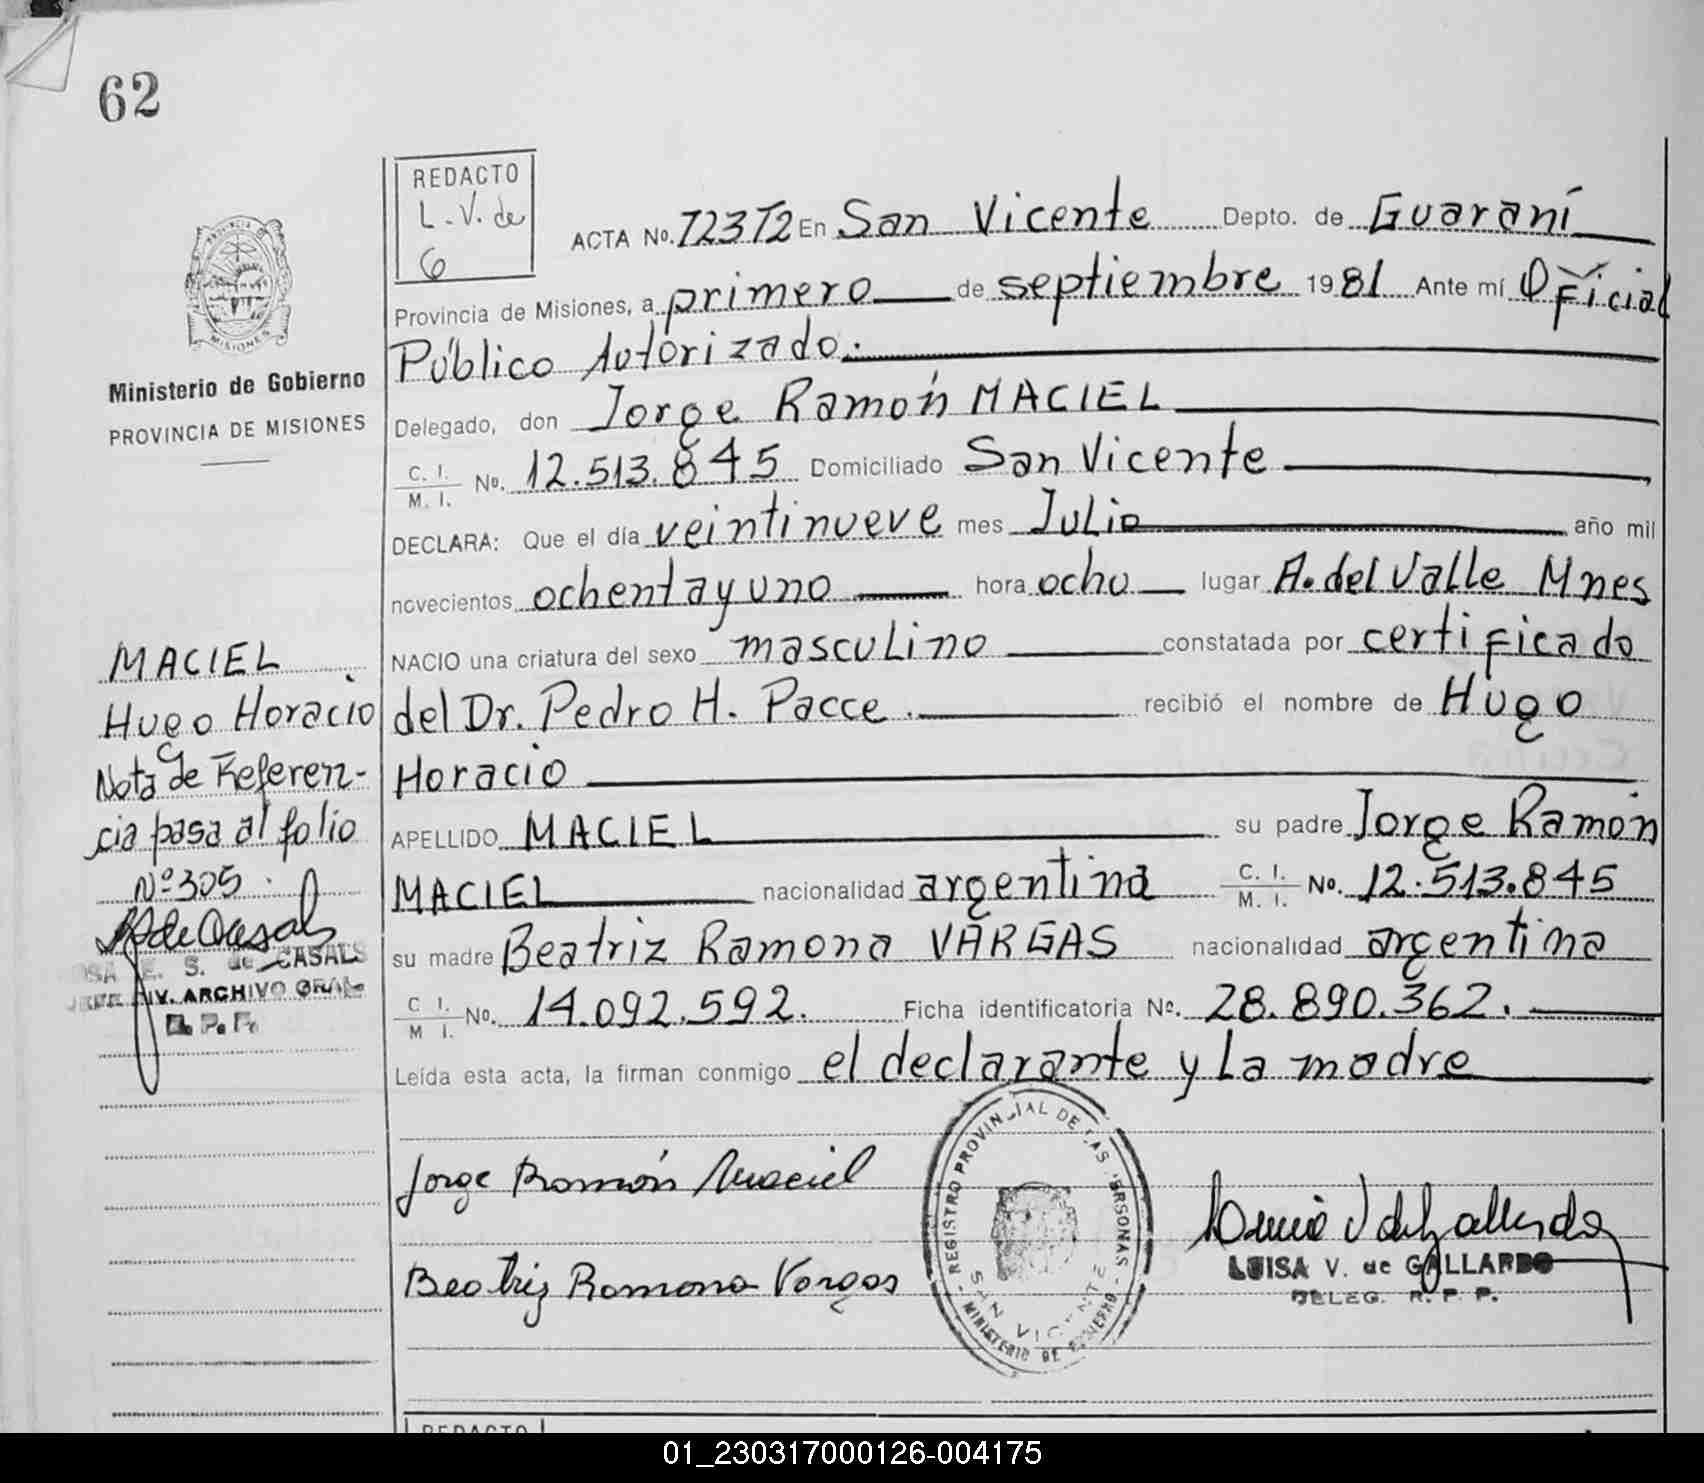 62
REDACTO
L.V. de
G
ACTA No. 723T2 En San Vicente Depto. de Guaraní
Provincia de Misiones, a primero de septiembre 1981 Ante mí Oficial
Público Autorizado.
Delegado, don Jorge Ramón MACIEL
C. I.
M. I. No. 12.513.845 Domiciliado San Vicente
DECLARA: Que el día veintinueve mes Julio año mil
novecientos ochentayuno hora ocho lugar A. del Valle Mnes
NACIO una criatura del sexo masculino constatada por certificado
del Dr. Pedro H. Pacce. recibió el nombre de Hugo
Horacio
APELLIDO MACIEL su padre Jorge Ramón
MACIEL nacionalidad argentina C. I.
M. I. No. 12.513.845
su madre Beatriz Ramona VARGAS nacionalidad argentina
C. I.
M. I. No. 14.092.592. Ficha identificatoria No. 28.890.362.
Leída esta acta, la firman conmigo el declarante y La madre
Jorge Ramón Maciel
Beatriz Ramona Vargas
REGISTRO PROVINCIAL DE LAS PERSONAS
SAN VICENTE
MINISTERIO DE GOBIERNO
LUISA V. de GALLARDO
DELEG. R. P. P.
PROVINCIA DE
MISIONES
Ministerio de Gobierno
PROVINCIA DE MISIONES
MACIEL
Hugo Horacio
Nota de Referen-
cia pasa al folio
Nº 305.
E. S. de CASALS
JEFE DIV. ARCHIVO GRAL.
R. P. P.
REDACTO
01_230317000126-004175